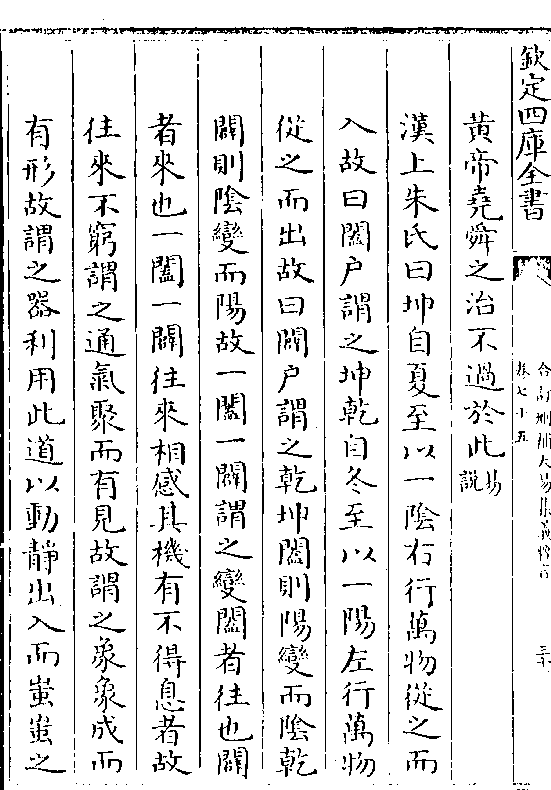 欽定四庫全書
合訂刪補大易集義粹言
卷七十五
黄帝堯舜之治不過於此易說
漢上朱氏曰坤自夏至以一陰右行萬物從之而
入故曰闔户謂之坤乾自冬至以一陽左行萬物
從之而出故曰闢户謂之乾坤闔則陽變而陰乾
闢則陰變而陽故一闔一闢謂之變闔者往也闢
者來也一闔一闢往來相感其機有不得息者故
往來不窮謂之通氣聚而有見故謂之象象成而
有形故謂之器利用此道以動靜出入而蚩蚩之